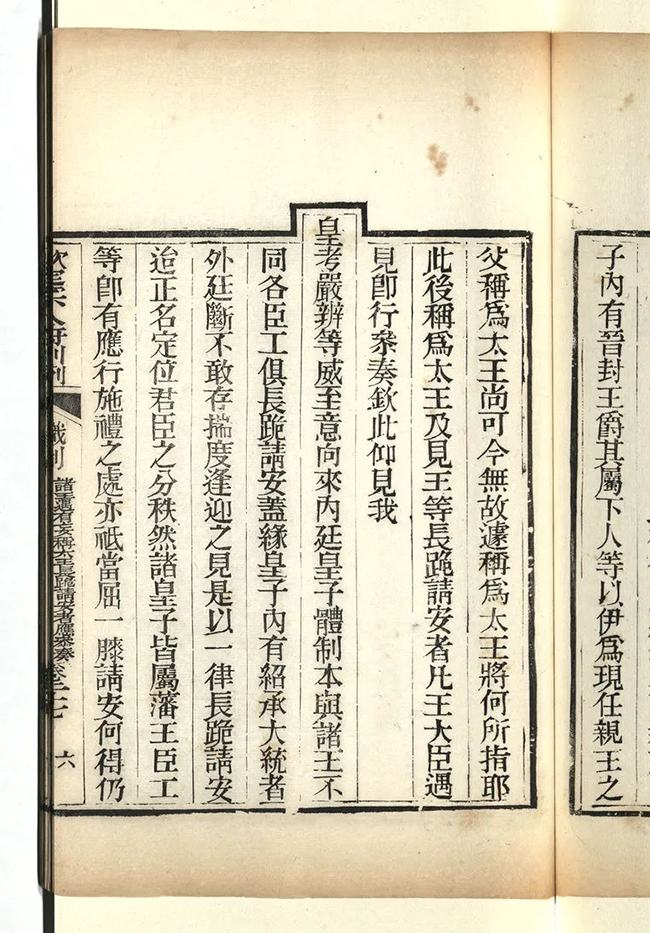 子內有晉封王爵其屬下人等以伊爲現任親王之
父稱爲太王尚可今無故遽稱爲太王將何所指耶
此後稱爲太王及見王等長跪請安者凡王大臣遇
見卽行叅奏欽此仰見我
皇考嚴辨等威至意向來內廷皇子體制本與諸王不
同各臣工俱長跪請安蓋緣皇子內有紹承大統者
外廷斷不敢存揣度逢迎之見是以一律長跪請安
迨正名定位君臣之分秩然諸皇子皆屬藩王臣工
等卽有應行施禮之處亦祗當屈一膝請安何得仍
欽定 人府則例
職制 諸王有妄稱太王長跪請安者應叅奏 卷二十七 六